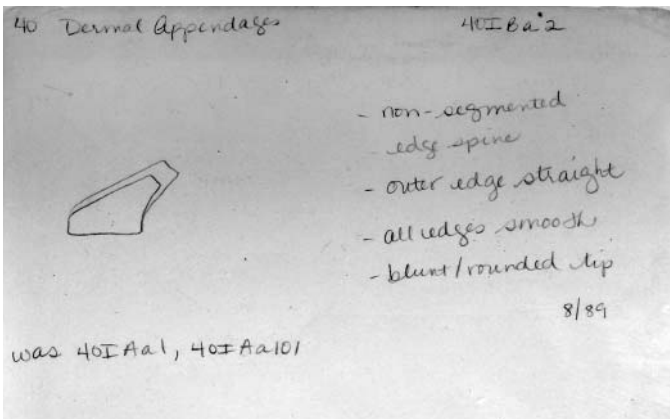 40 Dermal Appendages
40IBa2
- non-segmented
- edge spine
- outer edge straight
- all edges smooth
- blunt/rounded tip
8/89
was 40IAa1, 40IAa101